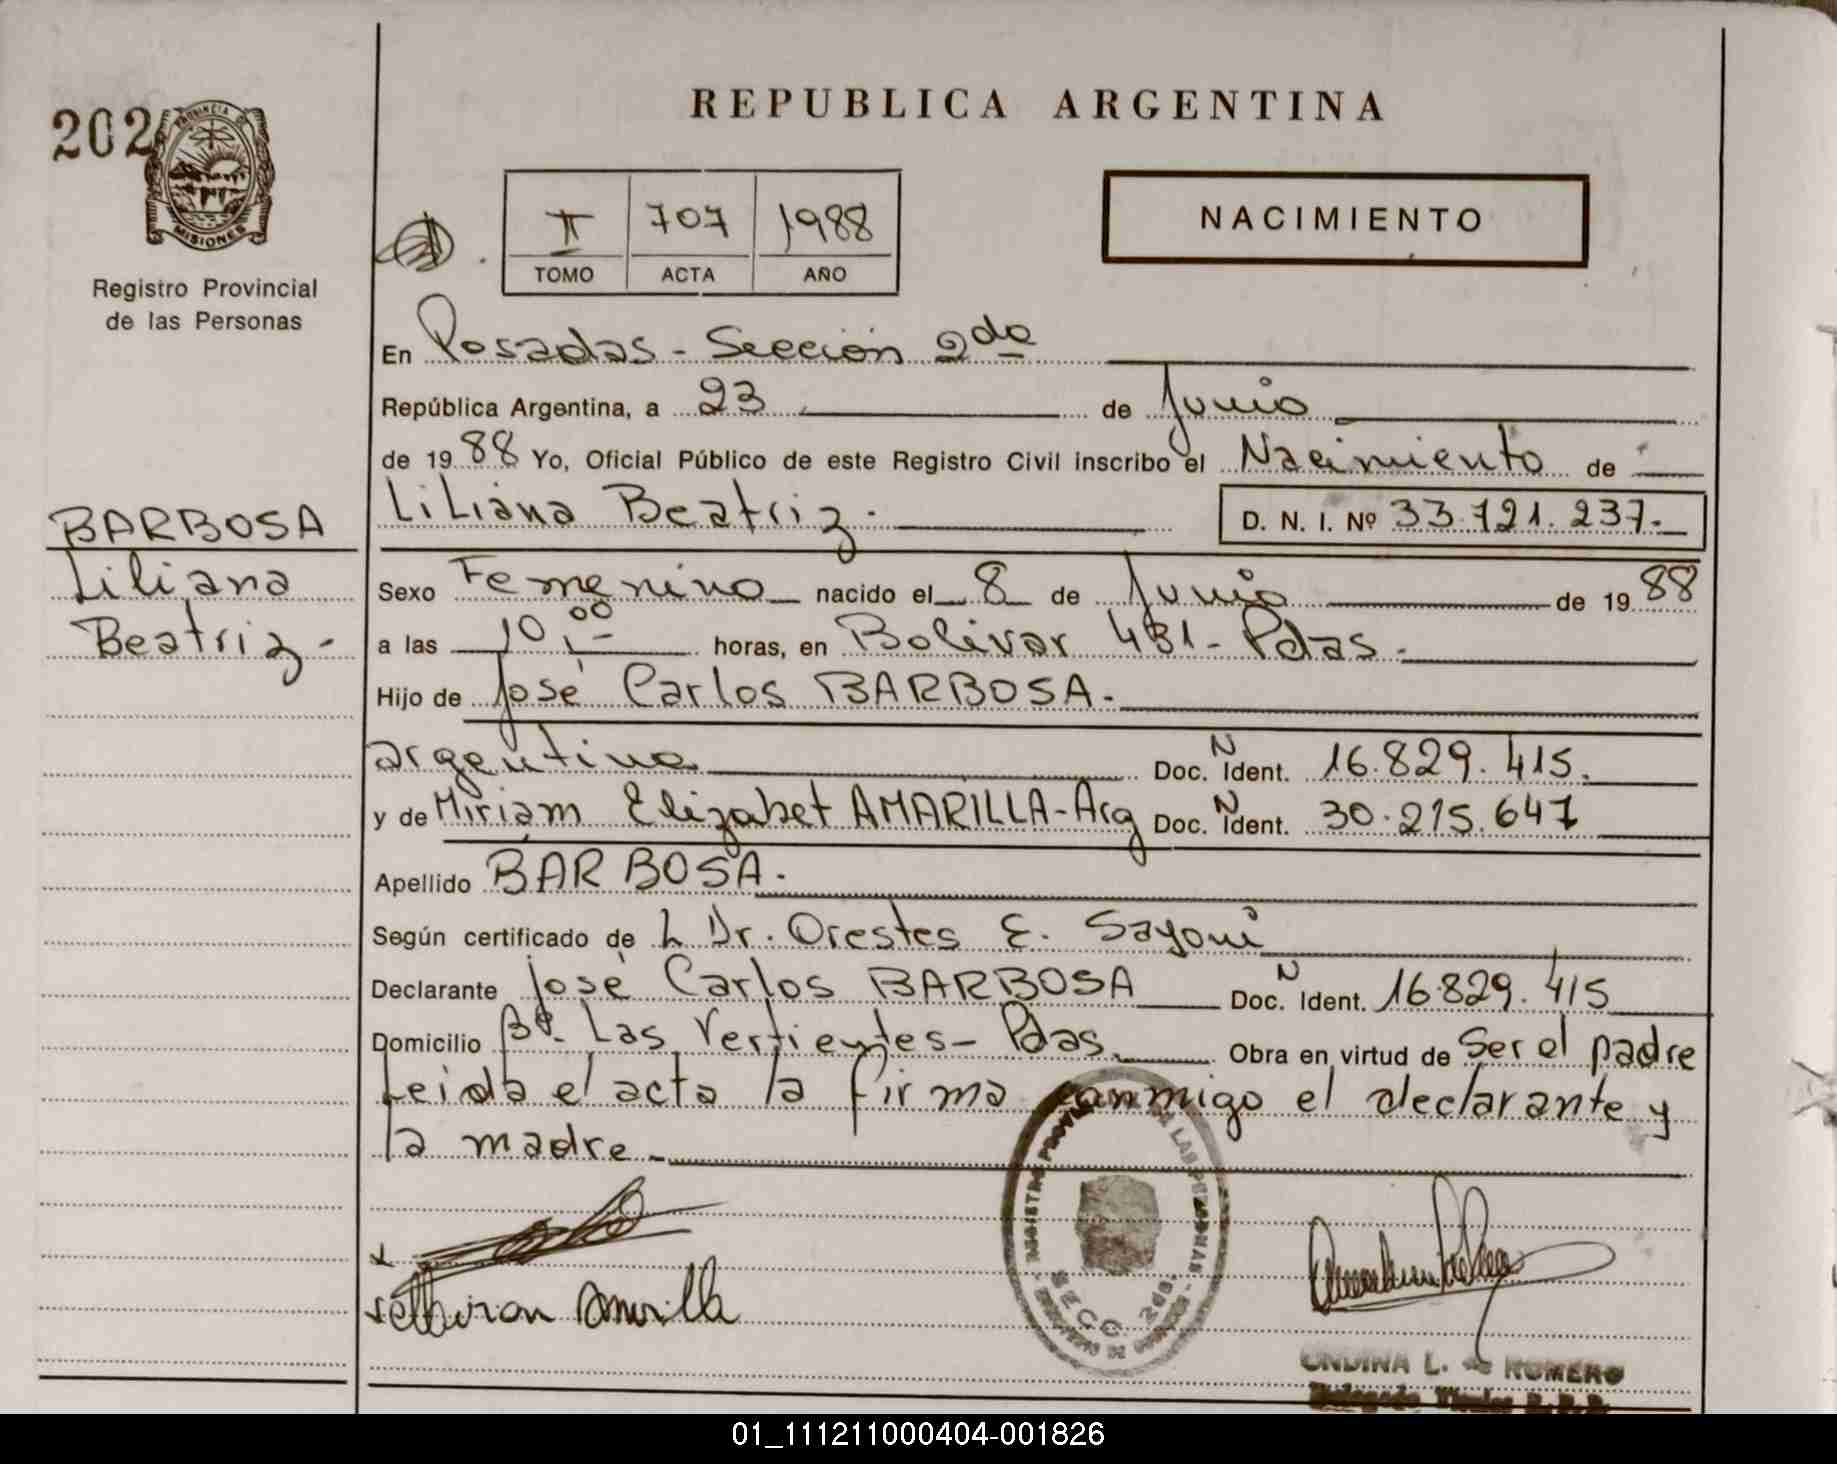 202
PROVINCIA DE
MISIONES
Registro Provincial
de las Personas
BARBOSA
Liliana
Beatriz -
REPUBLICA ARGENTINA
II 707 1988
TOMO ACTA AÑO
NACIMIENTO
En Posadas - Sección 2da
República Argentina, a 23 de Junio
de 1988 Yo, Oficial Público de este Registro Civil inscribo el Nacimiento de
Liliana Beatriz. D. N. I. Nº 33.721.237.-
Sexo Femenino nacido el 8 de Junio de 1988
a las 10,00 horas, en Bolivar 431 - Pdas.
Hijo de José Carlos BARBOSA.
argentino Doc. N Ident. 16.829.415.
y de Miriam Elizabet AMARILLA - Arg Doc. N Ident. 30.215.647
Apellido BARBOSA.
Según certificado de L Dr. Orestes E.
Declarante José Carlos BARBOSA Doc. N Ident. 16.829.415
Domicilio Bº. Las Vertientes - Pdas. Obra en virtud de Ser el padre
Leida el acta la firma conmigo el declarante y
la madre.
REGISTRO PROVINCIAL DE LAS PERSONAS
SECC. 2da.
Amarilla
ONDINA L. de ROMERO
01_111211000404-001826